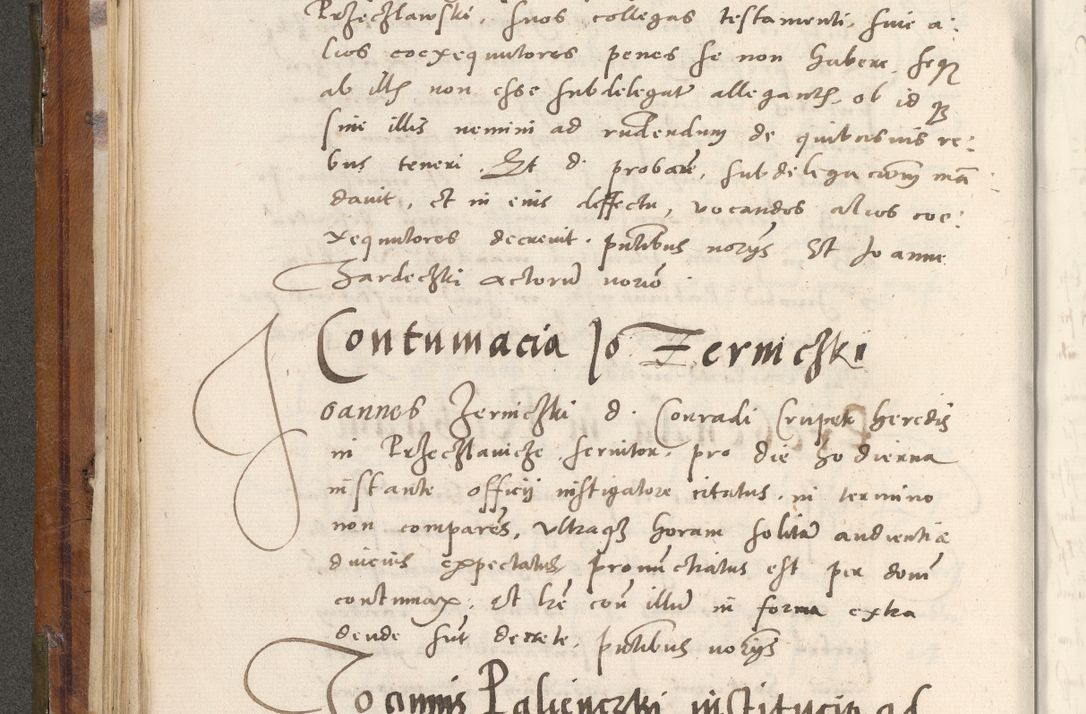 Przeczlawski, suos collegas testamenti, siue a:
lios coexequutores penes se non habere, seqz
ab illis non esse subdelegatū alleganteɜ, ob id qz
sine illis nemini ad rudendum de quibusuis re:
bus teneri. Et d. probare, subdelegacionem mā
dauit, et in eius deffectu, vocandos alios coe:
xequutores decreuit. pntibus norijs Et Joanne
Gardeczki actorū norio
Contumacia Jo Zerniczki
Joannes Zerniczki d. Conradi Crupek heredis
in Przeczlauicze seruitor, pro die hodierna
instante officij instigatore citatus, in termino
non comparēs, vltraqz horam solitā audientiæ
diucius expectatus pronūctiatus est per dom̄
contumax. Et lrē con̄ illū in forma extra
dende sūt decrete, pntibus norijs
Joannis Palieniczki institucio ad